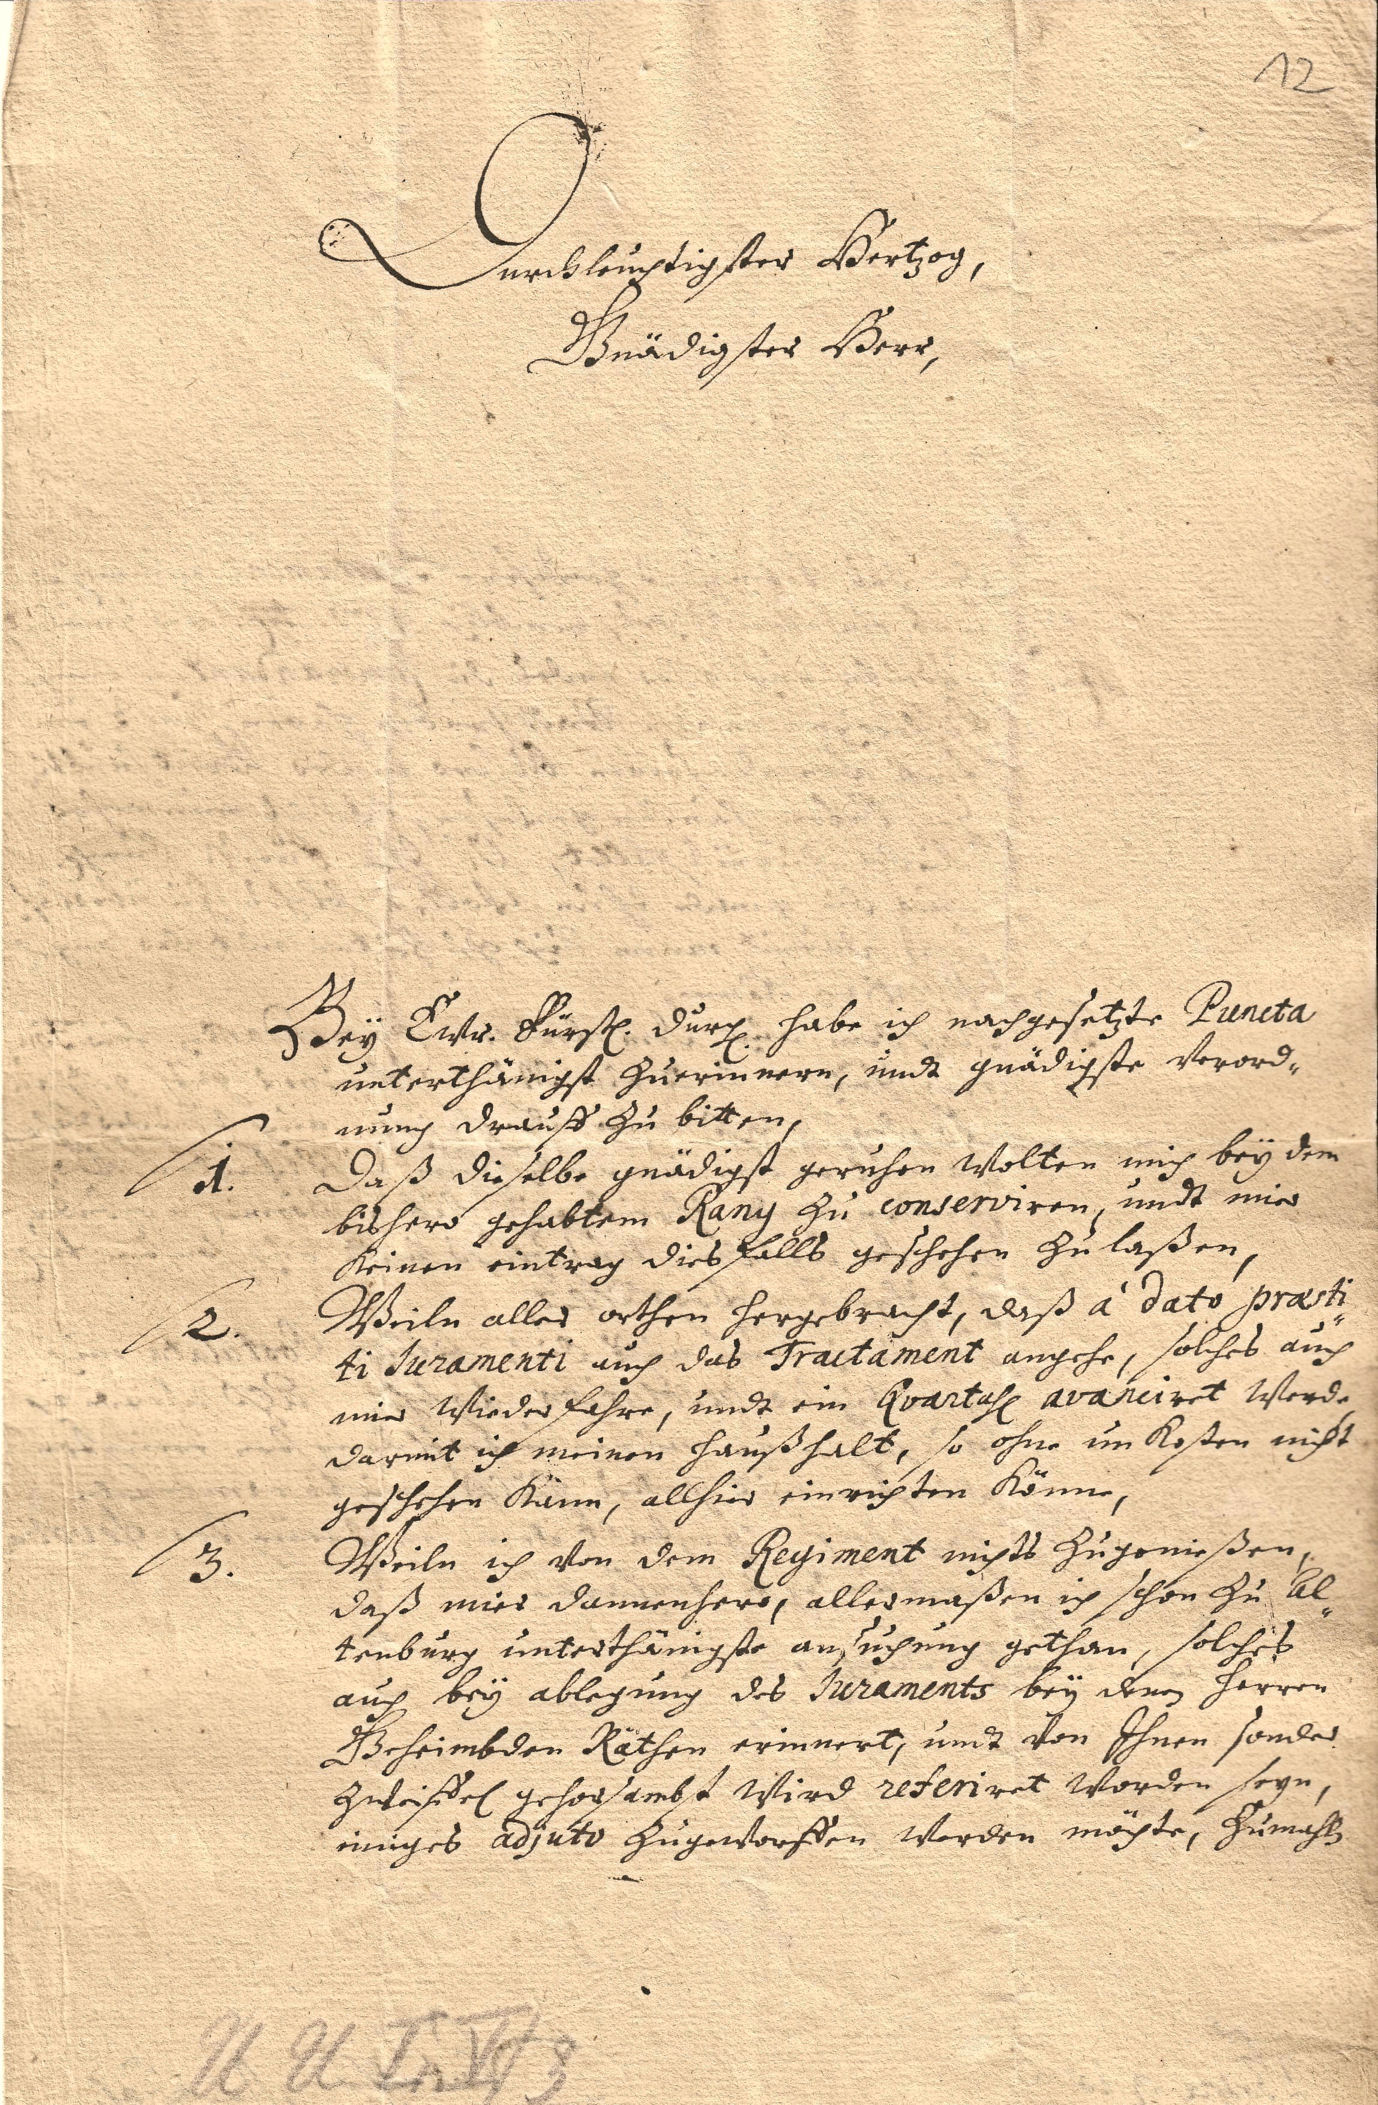 12
Durchleuchtigster Hertzog,
Gnädigster Herr,
Bey Ewr. Fürstl. Durchl. habe ich nachgesetzte Puncta
unterthänigst zuerinnern, undt gnädigste Verord-
nung drauff zu bitten,
1. Daß dieselbe gnädigst geruhen wolten mich bey dem
bishero gehabtem Rang zu conserviren, undt mier
keinen eintrag diesfalls geschehen zu laßen,
2. Weiln aller orthen hergebracht, daß à dato præsti-
ti Juramenti auch das Tractament angehe, solches auch
mier wiederfahre, undt ein Qvartahl avanciret werde
darmit ich meinen haußhalt, so ohne unkosten nicht
geschehen kann, allhier einrichten könne,
3. Weiln ich von dem Regiment nichts zugenießen,
daß mier dannenhero, allermaßen ich schon zu Al-
tenburg unterthänigste ansuchung gethan, solches
auch bey ablegung des Juraments bey denen Herren
Geheimbden Räthen erinnert, undt von Ihnen sonder
zweiffel gehorsambst wird referiret worden seyn,
einiges adjuto zugeworffen werden möchte, zumahln